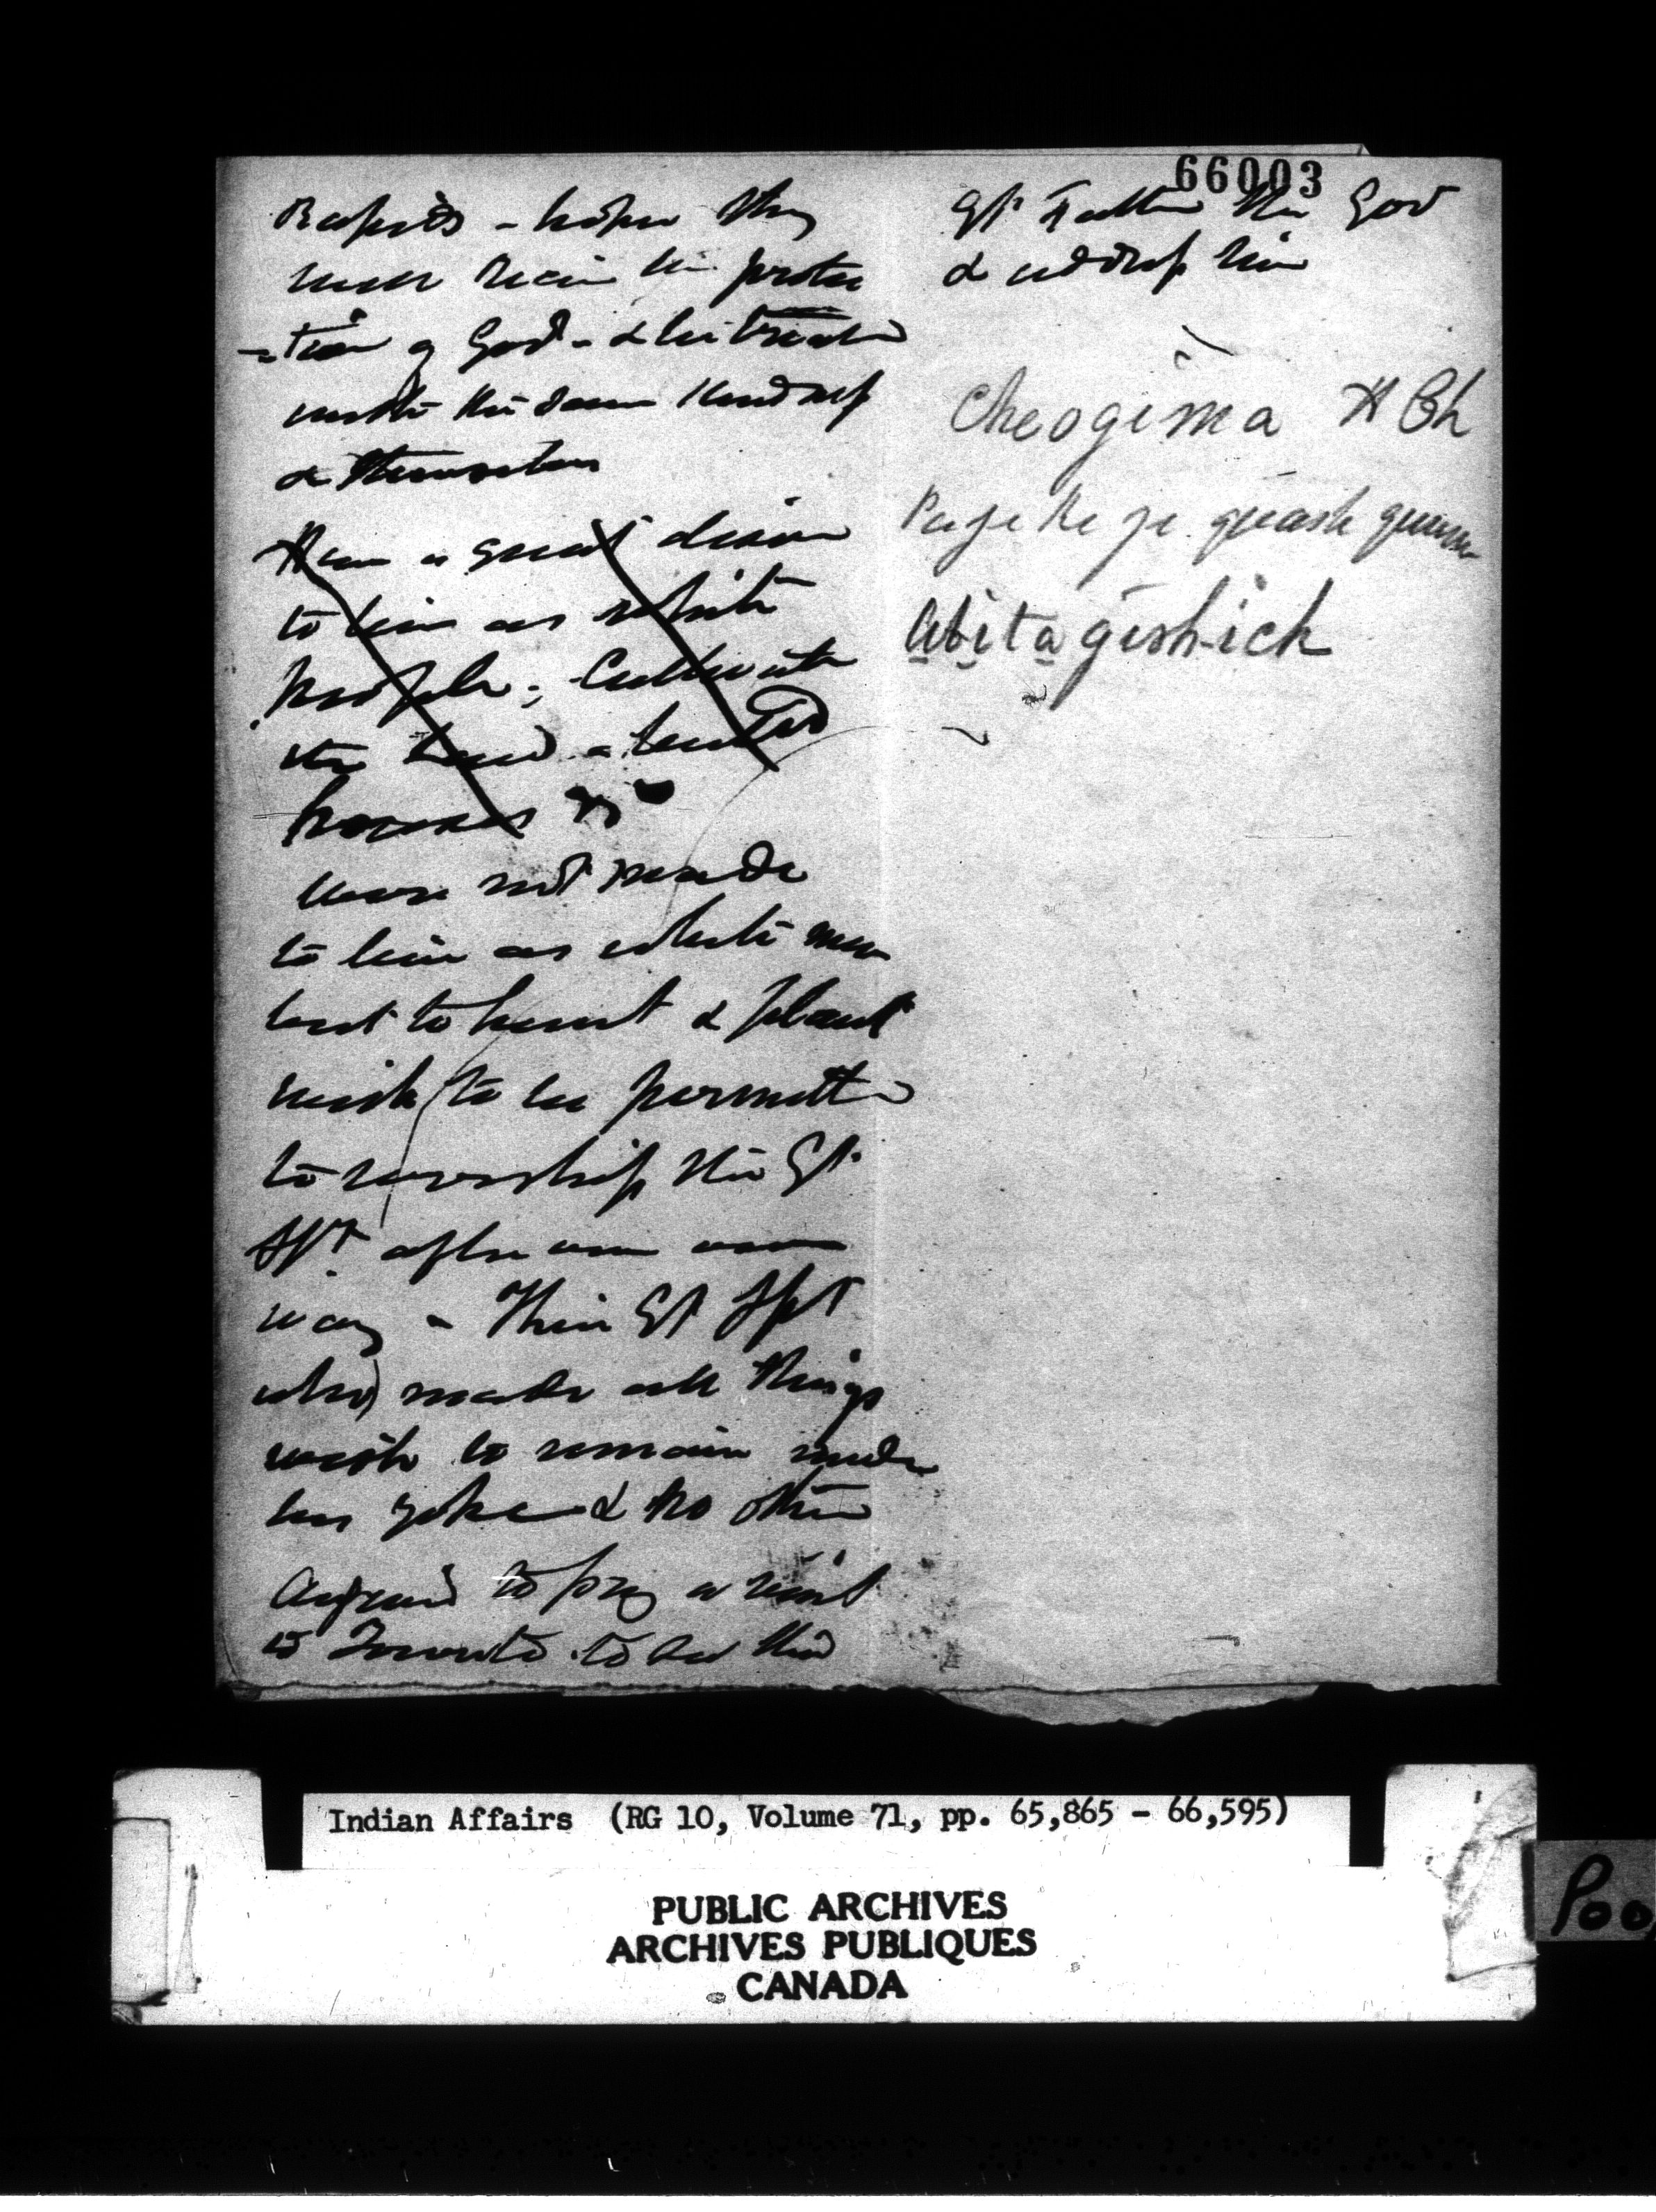 66003
Rapids - hopes they
will receive the protec
-tion of God - & be treated
with the same kindness
as themselves
Have a great desire
to live as white
people, Cultivate
the land -
houses
were not made
to live as white men
but to hunt & plant
wish to be permitted
to worship the Gt
Spt after our own
way - Their Gt Spt
who made all things
wish to remain under
his yoke & no other
Agreed to pay a visit
to Toronto to see their
Gt Father the Gov
& address him
Cheogima H Ch
quash
Abitagishick
Indian Affairs (RG 10, Volume 71, pp. 65,865 - 66,595)
PUBLIC ARCHIVES
ARCHIVES PUBLIQUES
CANADA
Poo